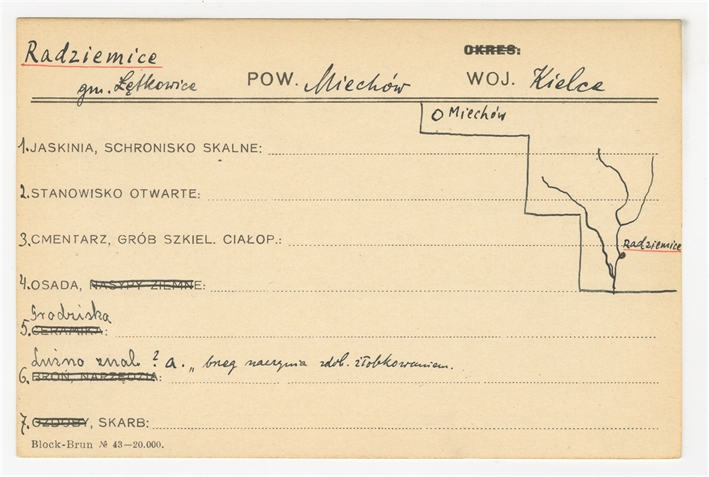 Radziemice
OKRES:
gm. Łętkowice POW. Miechów WOJ. Kielce
Miechów
1. JASKINIA, SCHRONISKO SKALNE:
2. STANOWISKO OTWARTE:
3. CMENTARZ, GRÓB SZKIEL. CIAŁOP.:
Radziemice
4. OSADA, NASYPY ZIEMNE:
Grodziska
5. CERAMIKA:
Luźno znal. ? a. „ brzeg naczynia zdob. żłobkowaniem.
6. BROŃ, NARZĘDZIA:
7. OZDOBY, SKARB:
Block-Brun № 43—20.000.